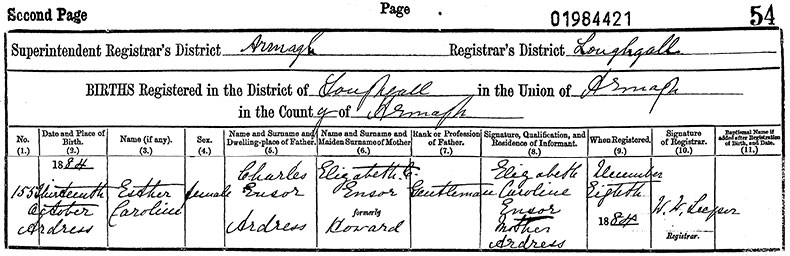 Second Page
Page
01984421
54
Superintendent Registrar's District Armagh
Registrar's District Loughgall
BIRTHS Registered in the District of Loughgall in the Union of Armagh
in the County of Armagh
No. (1.)
Date and Place of Birth. (2.)
Name (if any). (3.)
Sex. (4.)
Name and Surname and Dwelling-place of Father. (5.)
Name and Surname and Maiden Surname of Mother (6.)
Rank or Profession of Father. (7.)
Signature, Qualification, and Residence of Informant. (8.)
When Registered. (9.)
Signature of Registrar. (10.)
Baptismal Name if added after Registration of Birth, and Date. (11.)
155
1884
Thirteenth
October
Ardress
Esther
Caroline
female
Charles
Ensor
Ardress
Elizabeth C
Ensor
formerly
Howard
Gentleman
Elizabeth
Caroline
Ensor
Mother
Ardress
December
Eighth
1884
W. W. Leeper
Registrar.